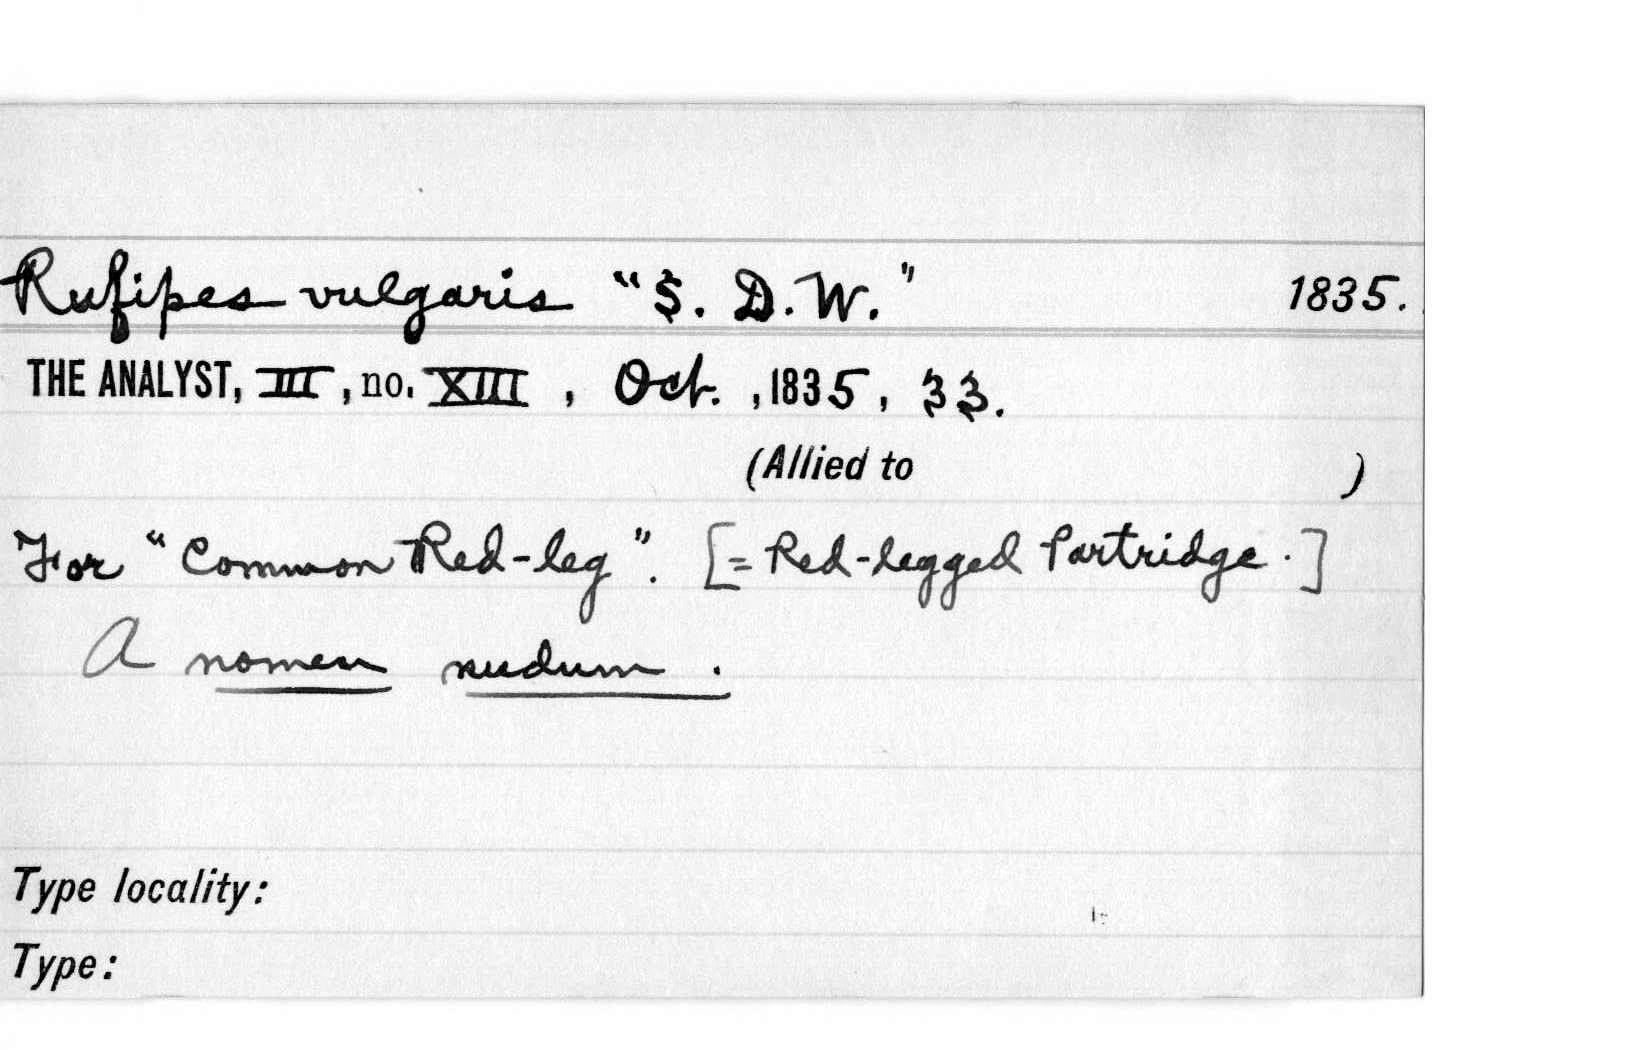 Rufipes vulgaris "S. D. W." 1835.
THE ANALYST, III, no. XIII, Oct., 1835, 33.
(Allied to )
For "Common Red-leg". [= Red-legged Partridge.]
A nomen nudum.
Type locality:
Type: